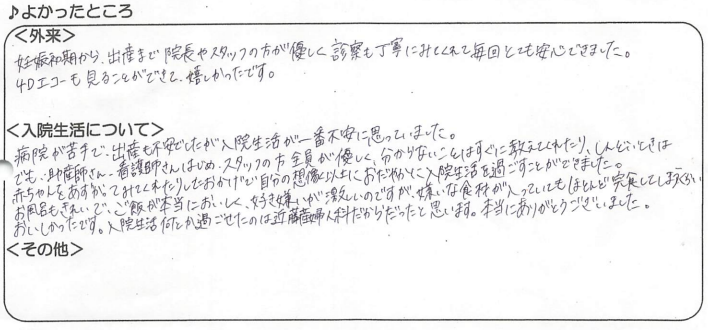 ♪よかったところ
<外来>
妊娠初期から、出産まで院長やスタッフの方が優しく診察も丁寧にみてくれて毎回とても安心できました。
4Dエコーも見ることができて、嬉しかったです。
<入院生活について>
病院が苦手で、出産も不安でしたが入院生活が一番不安に思っていました。
でも、助産師さん、看護師さんはじめ、スタッフの方全員が優しく、分からないことはすぐに教えてくれたり、しんどいときは
赤ちゃんをあずかってみてくれたりしたおかげで自分の想像以上におだやかに入院生活を過ごすことができました。
お風呂もきれいで、ご飯が本当においしく、好き嫌いが激しいのですが、嫌いな食材が入っていてもほとんど完食してしまうくらい
おいしかったです。入院生活何とか過ごせたのは近藤産婦人科だからだったと思います。本当にありがとうございました。
<その他>